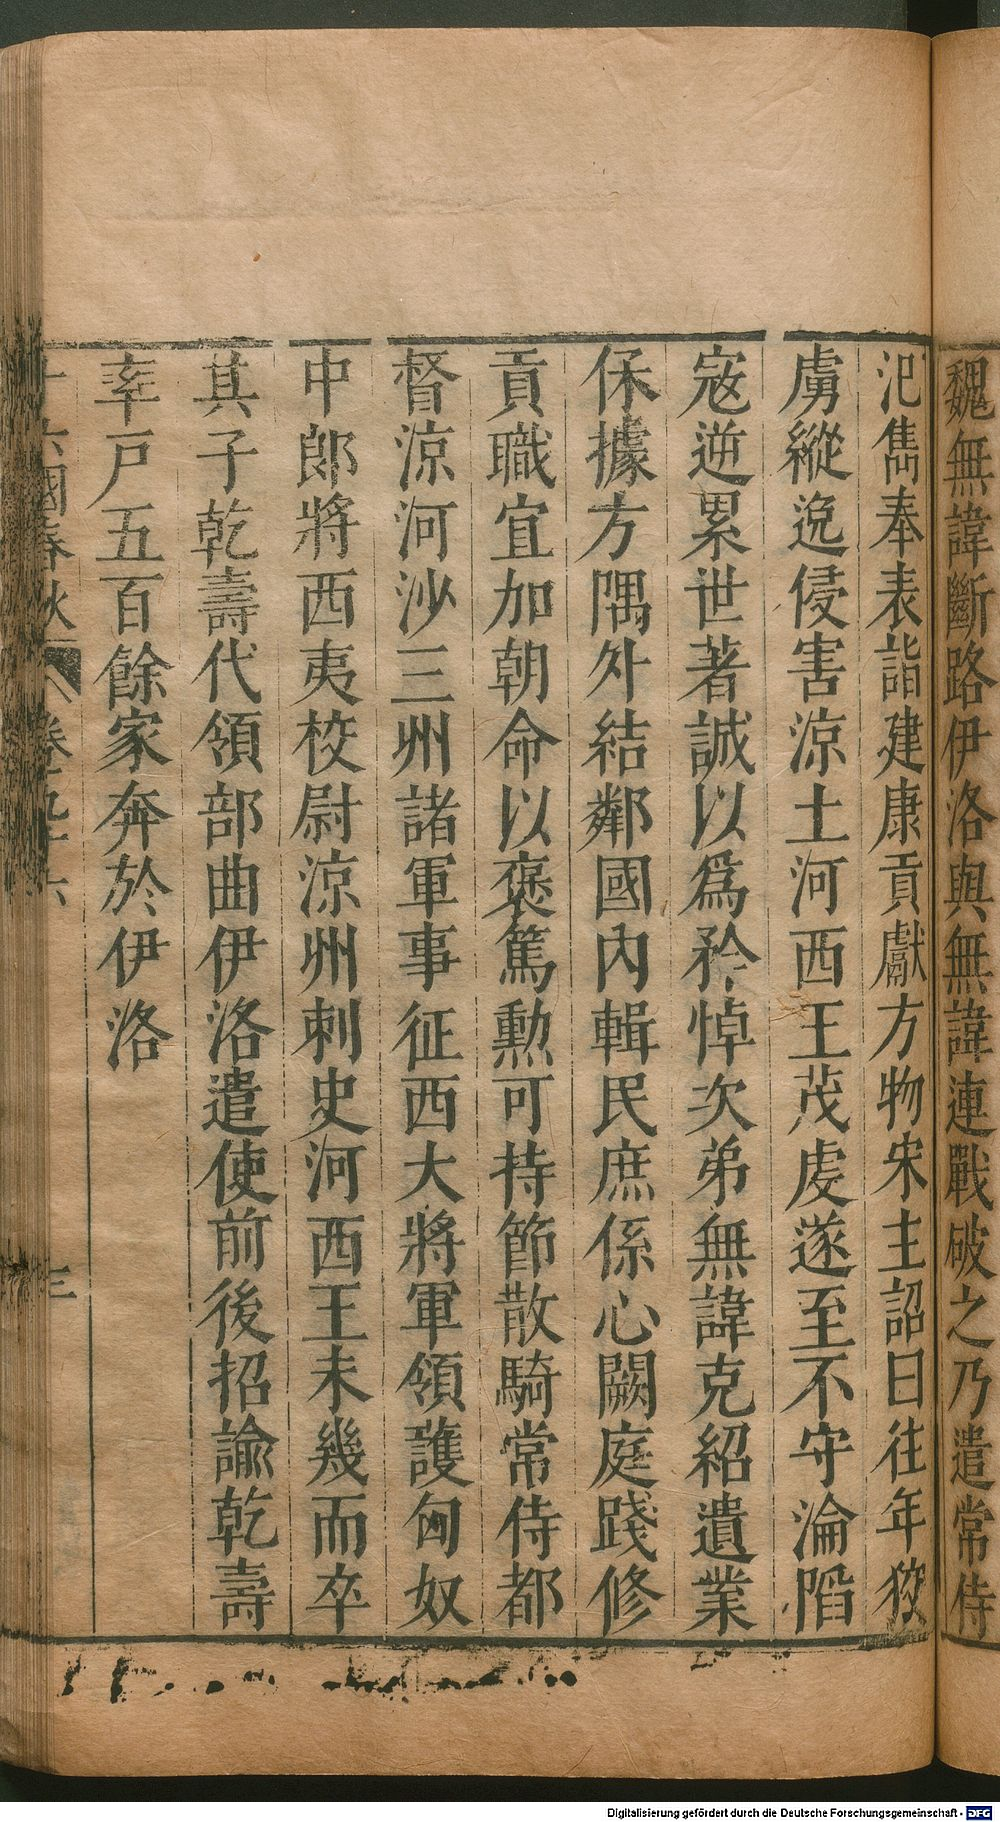 魏無諱斷路伊洛與無諱連戰破之乃遣常侍
氾雋奉表詣建康貢獻方物宋主詔曰往年狡
虜縱逸侵害涼土河西王茂虔遂至不守淪陷
寇逆累世著誠以爲矜悼次弟無諱克紹遺業
保據方隅外結鄰國內輯民庶係心闕庭踐修
貢職宜加朝命以褒篤勲可持節散騎常侍都
督涼河沙三州諸軍事征西大將軍領護匈奴
中郎將西夷校尉涼州刺史河西王未幾而卒
其子乾壽代領部曲伊洛遣使前後招諭乾壽
率戶五百餘家奔於伊洛
十六國春秋 卷九十六 三
Digitalisierung gefördert durch die Deutsche Forschungsgemeinschaft - DFG